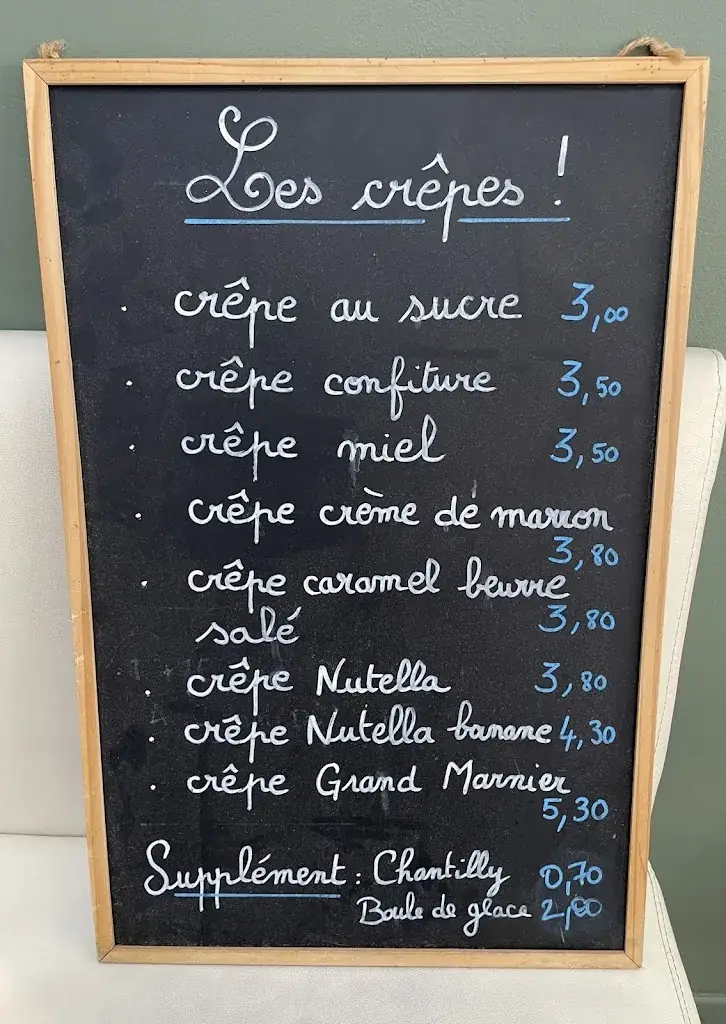 Les crêpes !
. crêpe au sucre 3,00
. crêpe confiture 3,50
. crêpe miel 3,50
. crêpe crème de marron
3,80
. crêpe caramel beurre
salé 3,80
. crêpe Nutella 3,80
. crêpe Nutella banane 4,30
. crêpe Grand Marnier
5,30
Supplément : Chantilly 0,70
Boule de glace 2,00